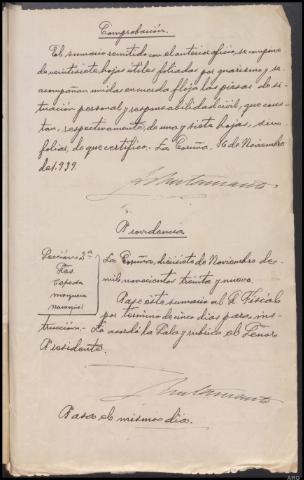 Comprobación.
El sumario remitido con el anterior oficio, se compone
de veintisiete hojas utiles foliadas por guarismo y se
acompañan unidas en cuerda floja las piezas de si-
tuación personal y responsabilidad civil, que cons-
tan, respectivamente, de una y siete hojas, sin
foliar, de que certifico.- La Coruña, 16 de Noviembre
de 1.939.
Providencia
Sección 2ª
La Coruña, diecisiete de Noviembre de
mil novecientos treinta y nueve.
Cepeda
Mosquera
Naranjo
Pase este sumario al Sr Fiscal
por termino de cinco dias para ins-
trucción.- Lo acordó la Sala y rubrica el Señor
Presidente.
Pasa el mismo dia.